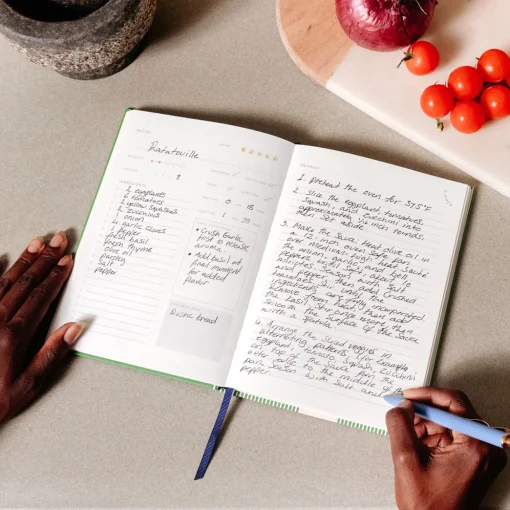 Ratatouille
2 eggplants
6 tomatoes
2 yellow squashes
2 zucchinis
1 onion
4 garlic cloves
1 pepper
fresh basil
fresh thyme
olive oil
parsley
salt
pepper
• Crush garlic
first to release
aroma
• Add basil at
final moment
for added
flavor
Rustic bread
1. Preheat the oven for 375°F.
2. Slice the eggplant, tomatoes,
squash, and zucchini into
approximately
rounds,
then set aside.
3. Make the sauce: heat olive oil in
a 12-inch oven safe pan
over medium-high heat. Sauté
the onion, garlic, and
peppers
minutes. Season with salt
and pepper, then add crushed
tomatoes. Stir until the
ingredients are fully incorporated.
Remove from heat, then add
the basil. Stir once more, then
smooth the surface of the sauce
with a spatula.
4. Arrange the sliced veggies in
alternating patterns (for example,
eggplant, tomato, squash, zucchini)
on top of the sauce from the
outer edge to the middle of the
pan. Season with salt and
pepper.